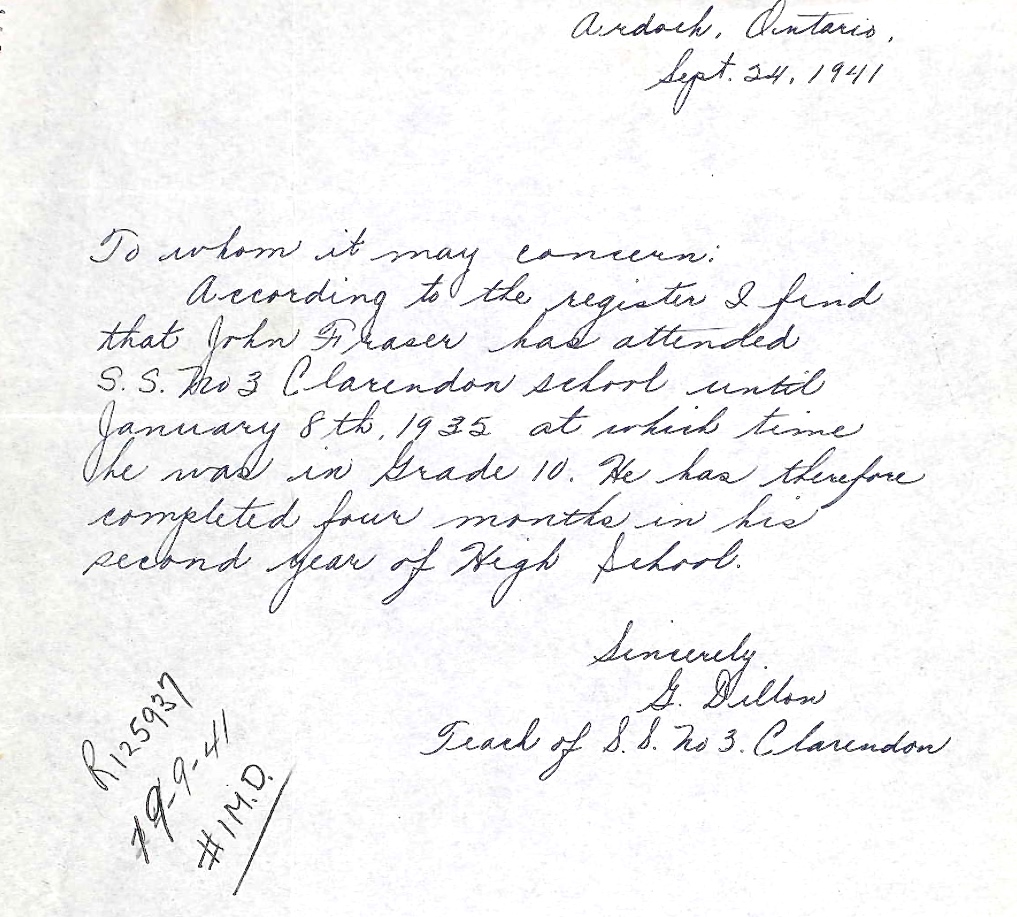 Ardoch, Ontario,
Sept. 24, 1941
To whom it may concern:
According to the register I find
that John Fraser has attended
S. S. No 3 Clarendon school until
January 8th, 1935 at which time
he was in Grade 10. He has therefore
completed four months in his
second year of High School.
Sincerely,
G. Dillon
Teach of S. S. No 3. Clarendon
R125937
19-9-41
#1 M.D.